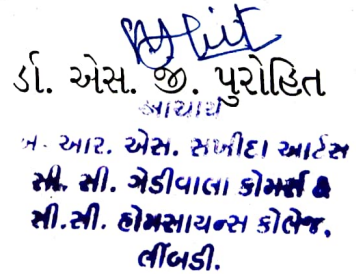 ર્ડા. એસ. જી. પુરોહિત
આચાર્ય
આર. એસ. સખીદા આર્ટસ
સી. સી. ગેડીવાલા કોમર્સ &
સી.સી. હોમસાયન્સ કોલેજ,
લીંબડી.